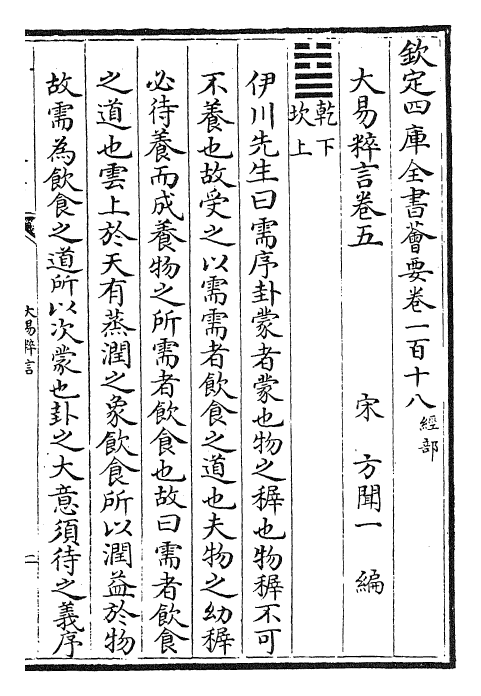 欽定四庫全書薈要卷一百十八 經部
大易粹言卷五 宋 方聞一 編
乾下
坎上
伊川先生曰需序卦蒙者蒙也物之穉也物穉不可
不養也故受之以需需者飲食之道也夫物之幼穉
必待養而成養物之所需者飲食也故曰需者飲食
之道也雲上於天有蒸潤之象飲食所以潤益於物
故需為飲食之道所以次蒙也卦之大意須待之義序
大易粹言